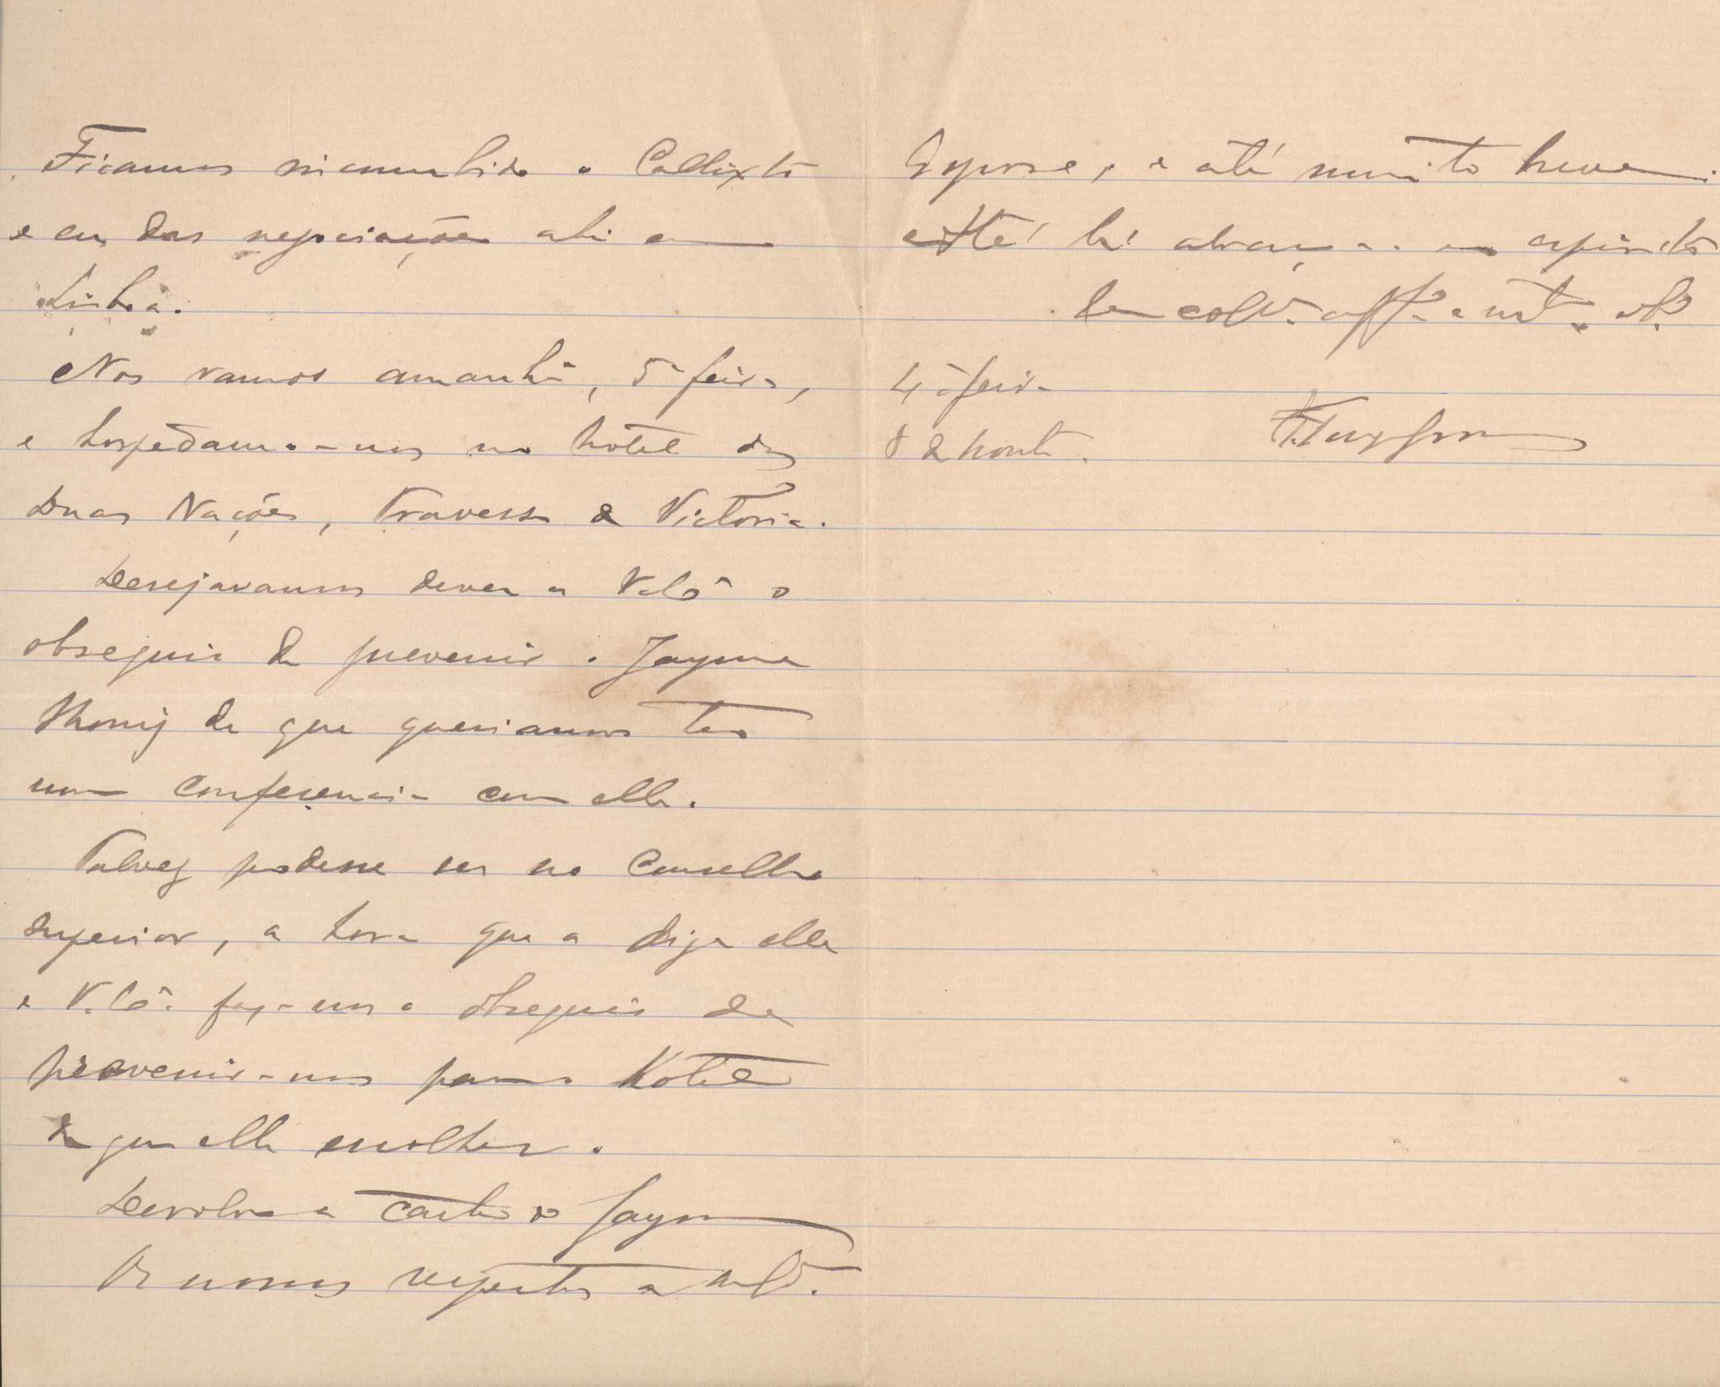 Ficamos incumbidos o Callixto
e eu das negociações ahi em
Lisboa.
Nos vamos amanhã, 5ª feira,
e hospedamo-nos no hotel das
Duas Nações, Travessa da Victoria.
Desejavamos dever a V. Cia o
obsequio de prevenir o Jayme
Thomy de que queriamos ter
uma conferencia com elle.
Talvez podesse ser no Conselho
Superior, a hora que a diga elle
e V. Cia. faz-nos o obsequio de
prevenir-nos para o Hotel
da que elle escolher.
Devolvo a carta do Jayme
Os nossos respeitos a
Esposa, e até muito breve.
Até lá abraça-o em espirito
4ª feira
8 da noute.